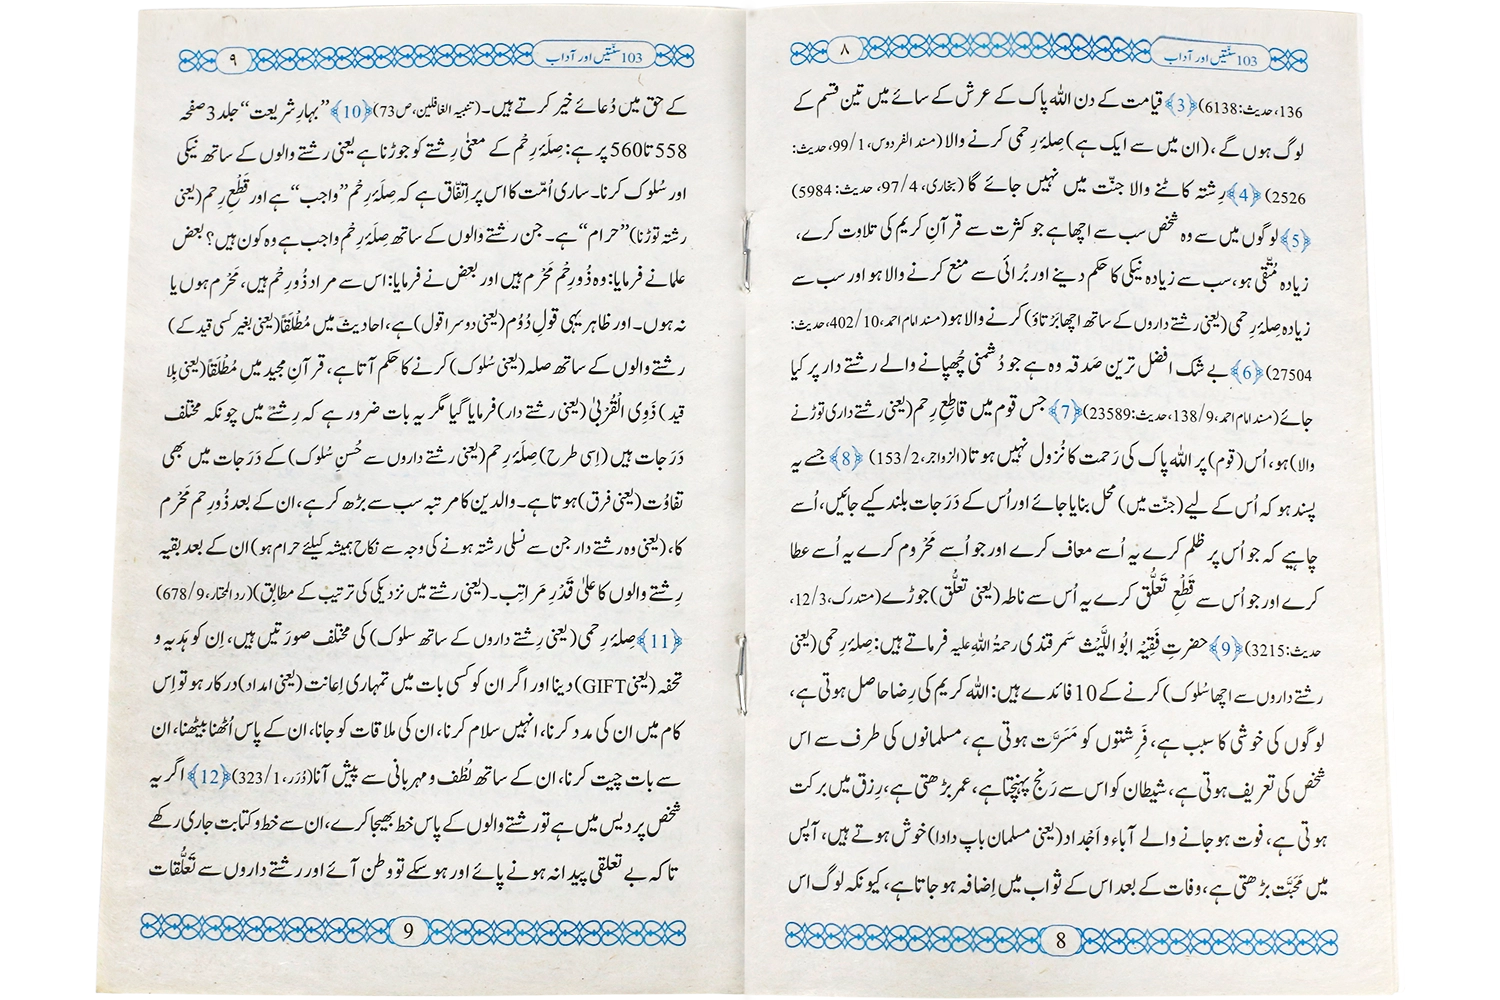 103 سنّتیں اور آداب
۸
136، حدیث: 6138) ﴿3﴾ قیامت کے دن اللہ پاک کے عرش کے سائے میں تین قسم کے
لوگ ہوں گے، (ان میں سے ایک ہے) صِلۂ رِحمی کرنے والا (مسند الفردوس، 1/99، حدیث:
2526) ﴿4﴾ رِشتہ کاٹنے والا جنّت میں نہیں جائے گا (بخاری، 4/97، حدیث: 5984)
﴿5﴾ لوگوں میں سے وہ شخص سب سے اچھا ہے جو کثرت سے قرآنِ کریم کی تلاوت کرے،
زیادہ مُتّقی ہو، سب سے زیادہ نیکی کا حکم دینے اور بُرائی سے منع کرنے والا ہو اور سب سے
زیادہ صِلۂ رحمی (یعنی رشتے داروں کے ساتھ اچھا بَرتاؤ) کرنے والا ہو (مسند امام احمد، 10/402، حدیث:
27504) ﴿6﴾ بے شک افضل ترین صَدقہ وہ ہے جو دُشمنی چُھپانے والے رشتے دار پر کیا
جائے (مسند امام احمد، 9/138، حدیث: 23589) ﴿7﴾ جس قوم میں قاطِعِ رِحم (یعنی رشتے داری توڑنے
والا) ہو، اُس (قوم) پر اللہ پاک کی رَحمت کا نُزول نہیں ہوتا (الزواجر، 2/153) ﴿8﴾ جسے یہ
پسند ہو کہ اُس کے لیے (جنّت میں) محل بنایا جائے اور اُس کے دَرَجات بلند کیے جائیں، اُسے
چاہیے کہ جو اُس پر ظلم کرے یہ اُسے معاف کرے اور جو اُسے مَحْروم کرے یہ اُسے عطا
کرے اور جو اُس سے قَطْعِ تَعَلُّق کرے یہ اُس سے ناطہ (یعنی تعلّق) جوڑے (مستدرک، 3/12،
حدیث: 3215) ﴿9﴾ حضرتِ فَقِیْہ ابُو اللَّیْث سَمَرقندی رحمۃُ اللہِ علیہ فرماتے ہیں: صِلۂ رِحمی (یعنی
رشتے داروں سے اچھا سُلوک) کرنے کے 10 فائدے ہیں: اللہ کریم کی رِضا حاصل ہوتی ہے،
لوگوں کی خوشی کا سبب ہے، فَرِشتوں کو مَسَرَّت ہوتی ہے، مسلمانوں کی طرف سے اس
شخص کی تعریف ہوتی ہے، شیطان کو اس سے رَنج پہنچتا ہے، عمر بڑھتی ہے، رِزق میں برکت
ہوتی ہے، فوت ہو جانے والے آباء و اَجْداد (یعنی مسلمان باپ دادا) خوش ہوتے ہیں، آپس
میں مَحَبَّت بڑھتی ہے، وفات کے بعد اس کے ثواب میں اِضافہ ہو جاتا ہے، کیونکہ لوگ اس
8
103 سنّتیں اور آداب
۹
کے حق میں دُعائے خیر کرتے ہیں۔ (تنبیہ الغافلین، ص73) ﴿10﴾ ”بہارِ شریعت“ جلد 3 صفحہ
558 تا 560 پر ہے: صِلَۂ رِحْم کے معنیٰ رِشتے کو جوڑنا ہے یعنی رشتے والوں کے ساتھ نیکی
اور سُلوک کرنا۔ ساری اُمّت کا اس پر اِتّفاق ہے کہ صِلَۂ رِحْم ”واجب“ ہے اور قَطْعِ رِحم (یعنی
رشتہ توڑنا) ”حرام“ ہے۔ جن رشتے والوں کے ساتھ صِلَۂ رِحْم واجب ہے وہ کون ہیں؟ بعض
علما نے فرمایا: وہ ذُو رِحْم مَحْرَم ہیں اور بعض نے فرمایا: اس سے مراد ذُو رِحْم ہیں، مَحْرَم ہوں یا
نہ ہوں۔ اور ظاہر یہی قولِ دُوُم (یعنی دوسرا قول) ہے، احادیث میں مُطْلَقاً (یعنی بغیر کسی قید کے)
رشتے والوں کے ساتھ صلہ (یعنی سُلوک) کرنے کا حکم آتا ہے، قرآنِ مجید میں مُطْلَقاً (یعنی بِلا
قید) ذَوِی الْقُرْبیٰ (یعنی رشتے دار) فرمایا گیا مگر یہ بات ضرور ہے کہ رِشتے میں چونکہ مختلف
دَرَجات ہیں (اِسی طرح) صِلَۂ رِحم (یعنی رشتے داروں سے حُسنِ سُلوک) کے دَرَجات میں بھی
تفاوُت (یعنی فرق) ہوتا ہے۔ والدین کا مرتبہ سب سے بڑھ کر ہے، ان کے بعد ذُو رِحم مَحْرَم
کا، (یعنی وہ رشتے دار جن سے نسلی رشتہ ہونے کی وجہ سے نکاح ہمیشہ کیلئے حرام ہو) ان کے بعد بقیہ
رِشتے والوں کا علیٰ قَدْرِ مَراتِب۔ (یعنی رشتے میں نزدیکی کی ترتیب کے مطابِق) (رد المحتار، 9/678)
﴿11﴾ صِلۂ رِحمی (یعنی رِشتے داروں کے ساتھ سلوک) کی مختلف صورَتیں ہیں، اِن کو ہَدِیہ و
تحفہ (یعنی GIFT) دینا اور اگر ان کو کسی بات میں تمہاری اِعانت (یعنی امداد) درکار ہو تو اِس
کام میں ان کی مدد کرنا، انہیں سلام کرنا، ان کی ملاقات کو جانا، ان کے پاس اُٹھنا بیٹھنا، ان
سے بات چیت کرنا، ان کے ساتھ لُطْف و مہربانی سے پیش آنا (دُرَر، 1/323) ﴿12﴾ اگر یہ
شخص پردیس میں ہے تو رشتے والوں کے پاس خط بھیجا کرے، ان سے خط و کتابت جاری رکھے
تاکہ بے تعلقی پیدا نہ ہونے پائے اور ہو سکے تو وطن آئے اور رشتے داروں سے تَعَلُّقات
9